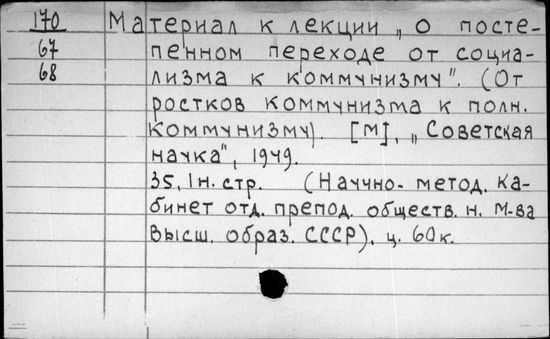 170 Материал к лекции „О посте-
67 пенном переходе от социа-
68 лизма к коммунизму". (От
ростков коммунизма к полн.
коммунизму). [М], „Советская
наука", 1949.
35, 1н. стр. (Научно-метод. ка-
бинет отд. препод. обществ. н. М-ва
высш. образ. СССР). ц. 60к.